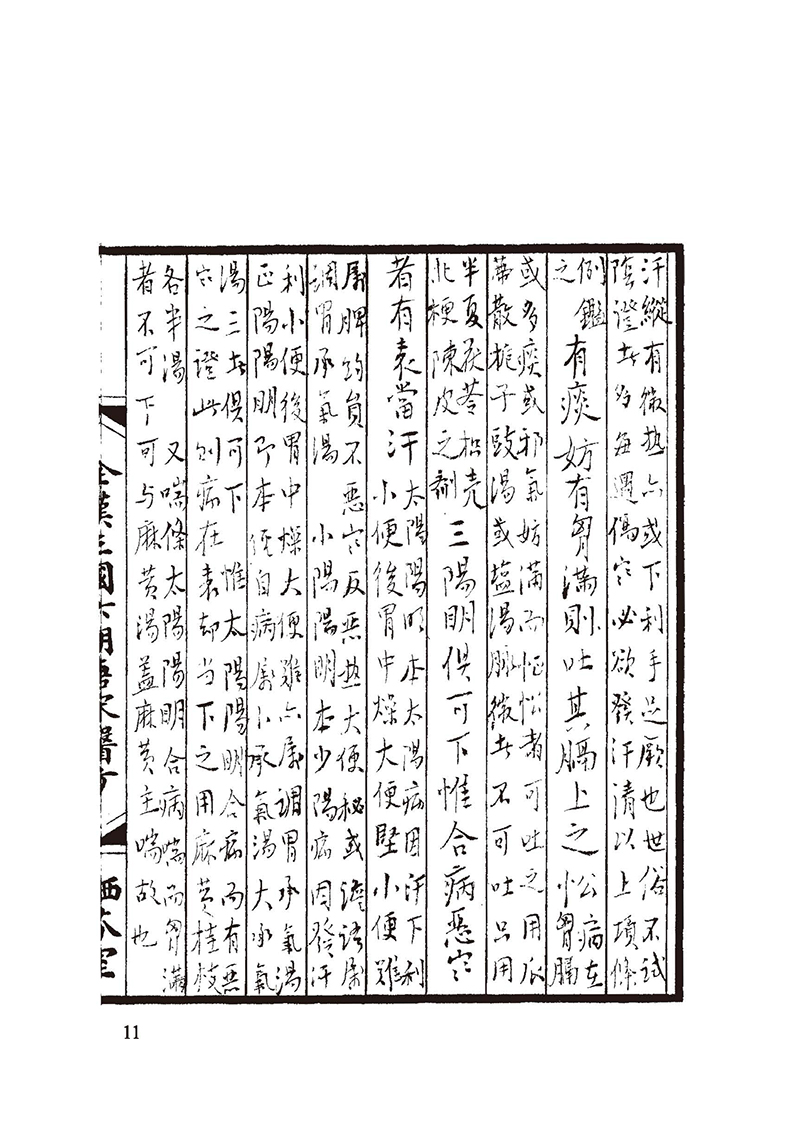 汗縱有微热亦或下利手足厥也世俗不試
陰證者多每遇傷寒必欲發汗清以上項條
例鑑
之
有痰妨有胷滿則吐其膈上之忪
病在
胷膈
或多痰或邪氣妨滿而恇忪者可吐之用瓜
蒂散梔子豉湯或盐湯脉微者不可吐只用
半夏茯苓枳壳
北梗陳皮之剤
三陽明俱可下惟合病惡寒
者有表當汗
太陽陽明本太陽病因汗下利
小便後胃中燥大便堅小便難
屬脾约員不惡寒反惡热大便秘或譫語屬
調胃承氣湯　小陽陽明本少陽病因發汗
利小便後胃中燥大便難亦屬調胃承氣湯
正陽陽明即本経自病屬小承氣湯大承氣
湯三者俱可下　惟太陽陽明合病而有惡
寒之證此則病在表却当下之用麻黄桂枝
各半湯　又喘條太陽陽明合病喘而胷滿
者不可下可与麻黄湯盖麻黄主喘故也
全漢三國六朝唐宋醫方
栖芬室
11